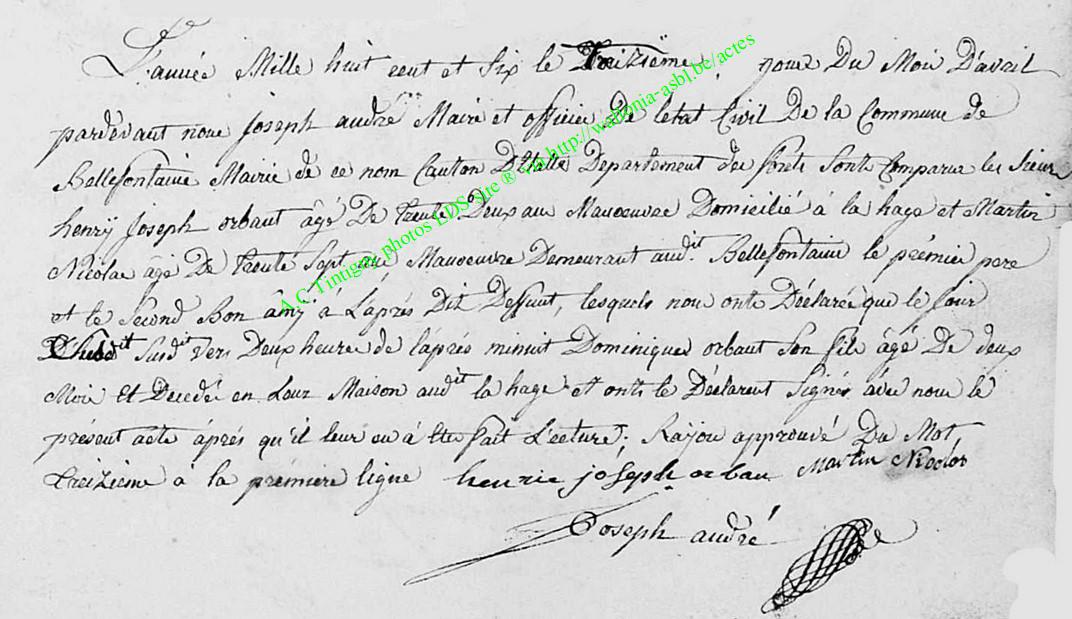 L'année Mille huit cent et Six le Treizième jour Du Mois D'avril
pardevant nous Joseph andré Maire et officier De l'etat Civil De la Commune de
Bellefontaine Mairie de ce nom Canton D'Etalle Departement des forêts Sonts Comparus les Sieurs
henrÿ Joseph orbant âgé De trente Deux ans Manoeuvre Domicilié à la hage et Martin
Nicolas âgé De trente Sept ans Manoeuvre Demeurant audit Bellefontaine le prémier pere
et le Second Bon âmÿ à L'aprés Dit Deffunt, lesquels nous onts Déclaréé que le jour
Susdit vers Deux heure de l'aprés minuit Dominique orbant Son fils âgé De deux
Mois Et Decedé en Leur Maison audit la hage et onts le Déclarent Signés avec nous le
présent acte áprés qu'il leur en à Eté fait Lecture; Rajou approuvé Du Mot
treizieme à la prémiere ligne henrie joseph orban Martin Nicolas
Joseph andré
A.C Tintigny photos EDS site ® via http://wallonia-asbl.be/actes